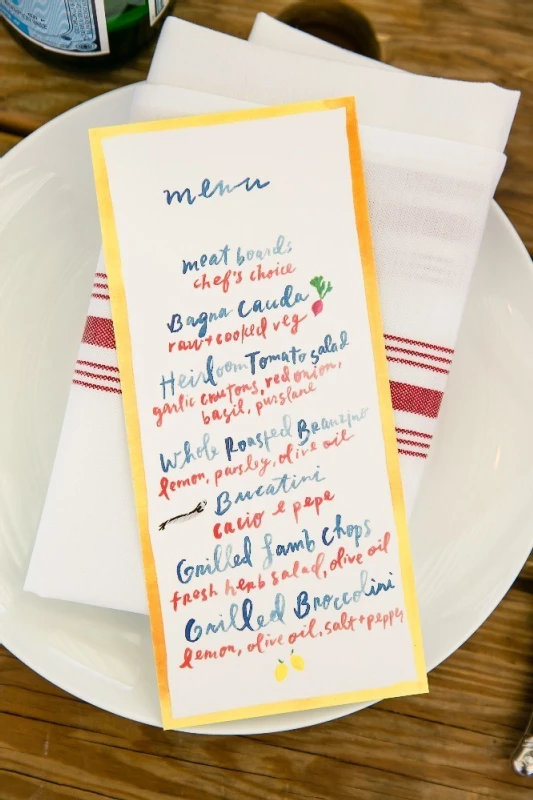 menu
meat boards
chef's choice
Bagna Cauda
raw + cooked veg
Heirloom Tomato salad
garlic croutons, red onion,
basil, purslane
Whole Roasted Branzino
lemon, parsley, olive oil
Bucatini
cacio e pepe
Grilled Lamb Chops
fresh herb salad, olive oil
Grilled Broccolini
lemon, olive oil, salt + pepper